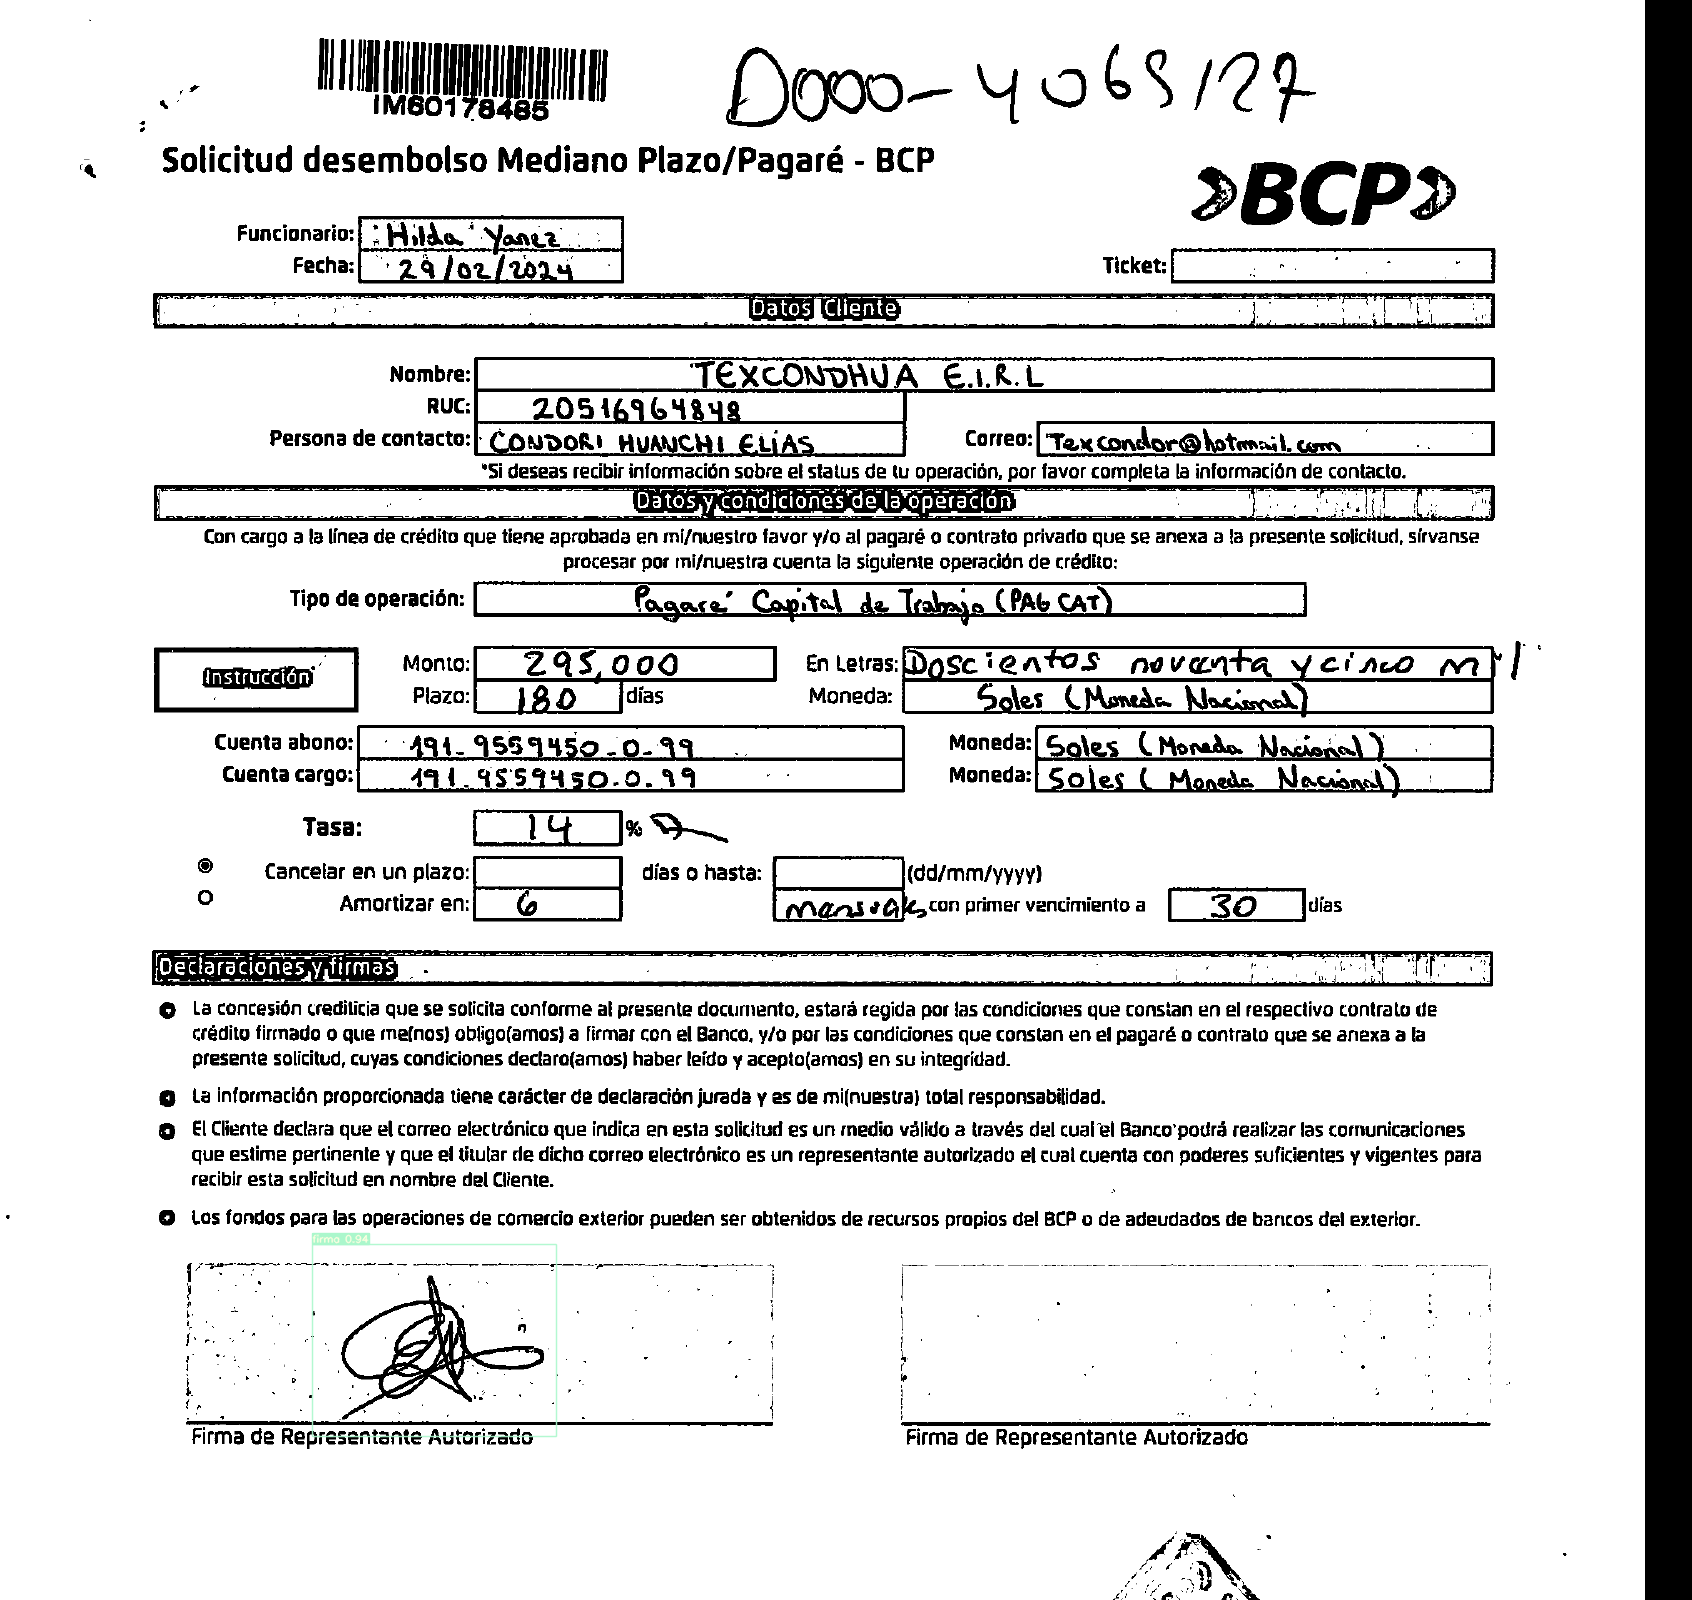 IM60178485
D000-4069127
Solicitud desembolso Mediano Plazo/Pagaré - BCP
BCP
Funcionario: Hilda Yanez
Fecha: 29/02/2024
Ticket:
Datos Cliente
Nombre: TEXCONDHUA E.I.R.L
RUC: 20516964848
Persona de contacto: CONDORI HUANCHI ELIAS Correo: Texcondor@hotmail.com
*Si deseas recibir información sobre el status de tu operación, por favor completa la información de contacto.
Datos y condiciones de la operación
Con cargo a la línea de crédito que tiene aprobada en mi/nuestro favor y/o al pagaré o contrato privado que se anexa a la presente solicitud, sírvanse
procesar por mi/nuestra cuenta la siguiente operación de crédito:
Tipo de operación: Pagaré Capital de Trabajo (PAG CAT)
Instrucción
Monto: 295,000 En Letras: Doscientos noventa y cinco mil
Plazo: 180 días Moneda: Soles (Moneda Nacional)
Cuenta abono: 191-9559450-0-99 Moneda: Soles (Moneda Nacional)
Cuenta cargo: 191-9559450-0-99 Moneda: Soles (Moneda Nacional)
Tasa: 14 %
Cancelar en un plazo: días o hasta: (dd/mm/yyyy)
Amortizar en: 6 mensuales con primer vencimiento a 30 días
Declaraciones y firmas
La concesión crediticia que se solicita conforme al presente documento, estará regida por las condiciones que constan en el respectivo contrato de
crédito firmado o que me(nos) obligo(amos) a firmar con el Banco, y/o por las condiciones que constan en el pagaré o contrato que se anexa a la
presente solicitud, cuyas condiciones declaro(amos) haber leído y acepto(amos) en su integridad.
La información proporcionada tiene carácter de declaración jurada y es de mi(nuestra) total responsabilidad.
El Cliente declara que el correo electrónico que indica en esta solicitud es un medio válido a través del cual el Banco podrá realizar las comunicaciones
que estime pertinente y que el titular de dicho correo electrónico es un representante autorizado el cual cuenta con poderes suficientes y vigentes para
recibir esta solicitud en nombre del Cliente.
Los fondos para las operaciones de comercio exterior pueden ser obtenidos de recursos propios del BCP o de adeudados de bancos del exterior.
firma 0.94
Firma de Representante Autorizado Firma de Representante Autorizado